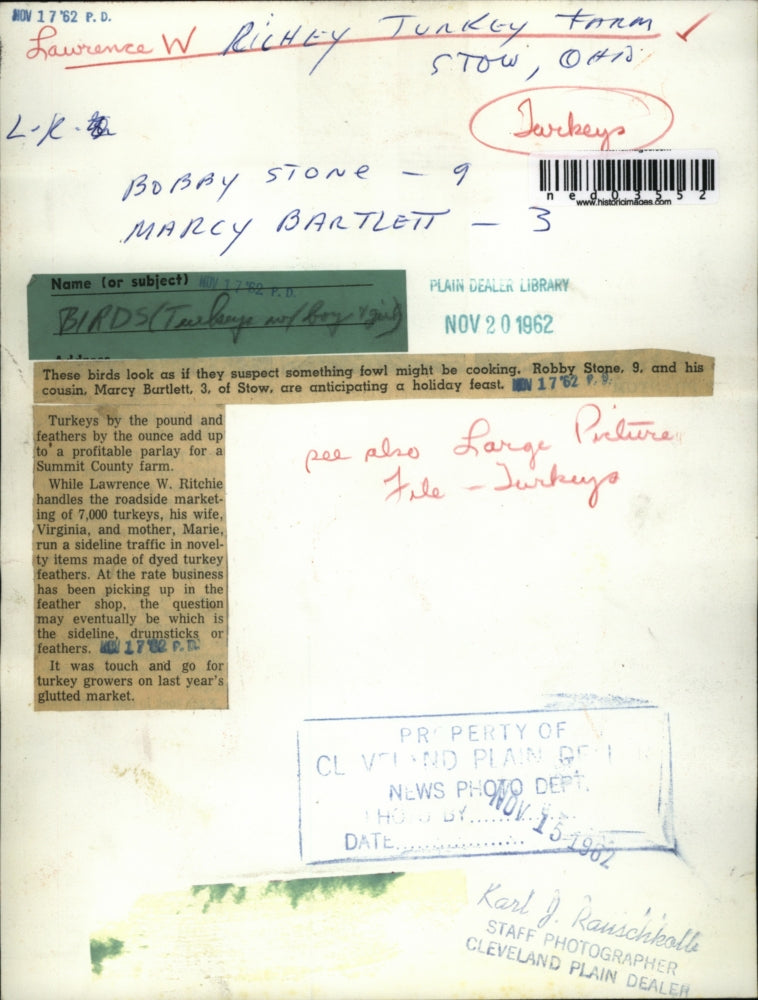 NOV 17 '62 P. D.
Lawrence W RICHEY TURKEY FARM
STOW, OHIO
L-R-
Turkeys
BOBBY STONE - 9
MARCY BARTLETT - 3
ned03552
www.historicimages.com
Name (or subject) NOV 17 '62 P. D.
BIRDS (Turkeys w/ boy & girl)
Address
PLAIN DEALER LIBRARY
NOV 20 1962
These birds look as if they suspect something fowl might be cooking. Robby Stone, 9, and his
cousin, Marcy Bartlett, 3, of Stow, are anticipating a holiday feast. NOV 17 '62 P. D.
Turkeys by the pound and
feathers by the ounce add up
to a profitable parlay for a
Summit County farm.
While Lawrence W. Ritchie
handles the roadside market-
ing of 7,000 turkeys, his wife,
Virginia, and mother, Marie,
run a sideline traffic in novel-
ty items made of dyed turkey
feathers. At the rate business
has been picking up in the
feather shop, the question
may eventually be which is
the sideline, drumsticks or
feathers. NOV 17 '62 P. D.
It was touch and go for
turkey growers on last year's
glutted market.
see also Large Picture
File - Turkeys
PROPERTY OF
CLEVELAND PLAIN DEALER
NEWS PHOTO DEPT.
PHOTO BY..........
DATE................ NOV 15 1962
Karl J. Rauschkolb
STAFF PHOTOGRAPHER
CLEVELAND PLAIN DEALER